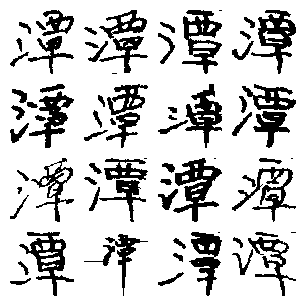 潭潭潭潭
潭潭潭潭
潭潭潭潭
潭潭潭潭